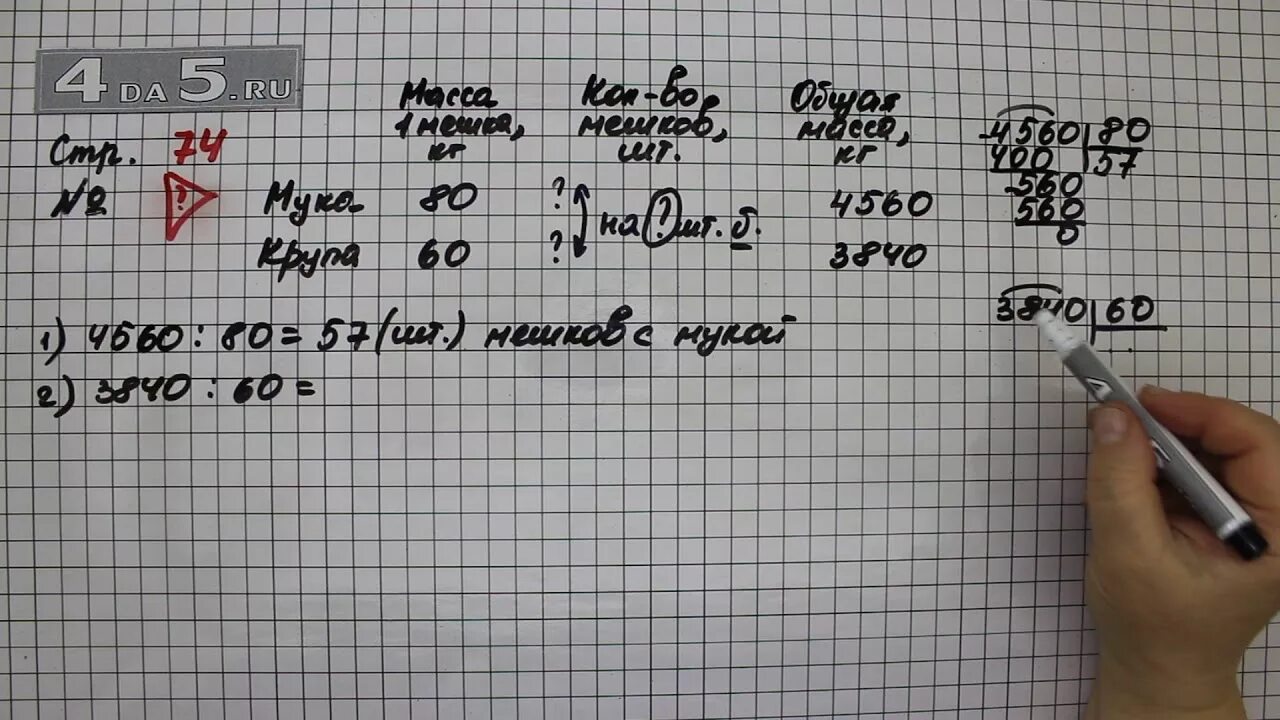 4DA5.RU
Стр. 74
№ ?
Масса 1 мешка, кг
Кол-во мешков, шт.
Общая масса, кг
Мука 80 ? 4560
на ? шт. б.
Крупа 60 ? 3840
1) 4560 : 80 = 57 (шт.) мешков с мукой
2) 3840 : 60 =
-4560 80
400 57
-560
560
0
3840 60
. .